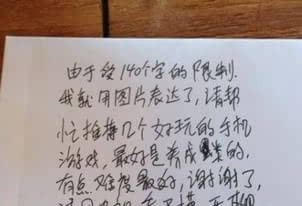 由于受140个字的限制.
我就用图片表达了,请帮
忙推荐几个好玩的手机
游戏,最好是养成类的,
有点难度最好,谢谢了,